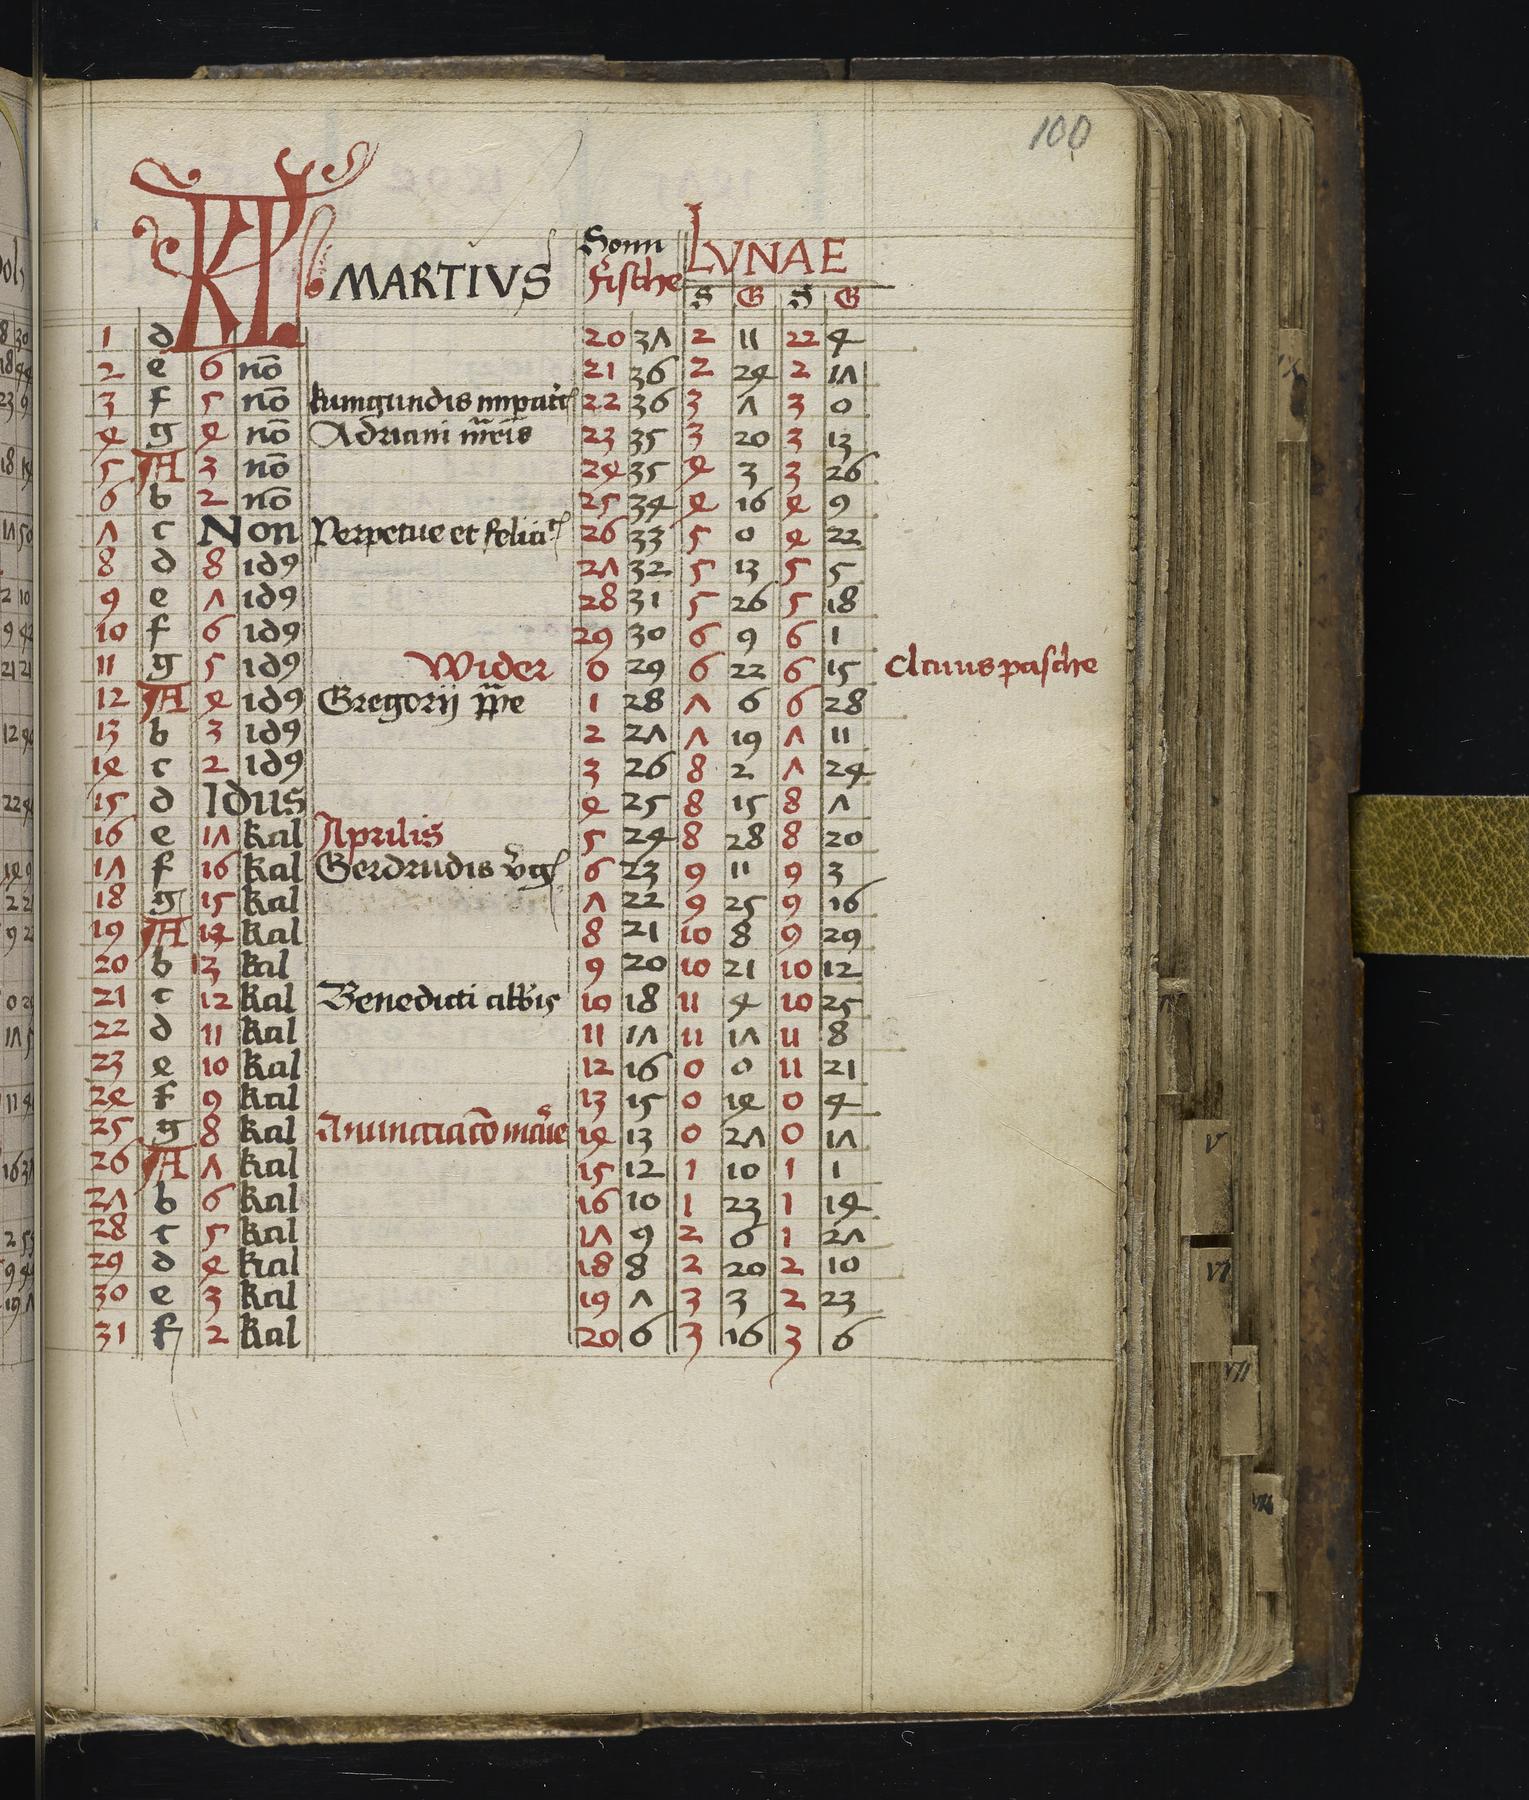 100
KL MARTIVS Sonn LVNAE
fische S G S G
1 d 20 37 2 11 22 4
2 e 6 nō 21 36 2 24 2 17
3 f 5 nō kunigundis 22 36 3 7 3 0
4 g 4 nō Adriani mr̄is 23 35 3 20 3 13
5 A 3 nō 24 35 4 3 3 26
6 b 2 nō 25 34 4 16 4 9
7 c Non Perpetue et felicit 26 33 5 0 4 22
8 d 8 id9 27 32 5 13 5 5
9 e 7 id9 28 31 5 26 5 18
10 f 6 id9 29 30 6 9 6 1
11 g 5 id9 Wider 0 29 6 22 6 15 Clauis pasche
12 A 4 id9 Gregorij ppe 1 28 7 6 6 28
13 b 3 id9 2 27 7 19 7 11
14 c 2 id9 3 26 8 2 7 24
15 d Idus 4 25 8 15 8 7
16 e 17 kal Aprilis 5 24 8 28 8 20
17 f 16 kal Gerdrudis v̄g 6 23 9 11 9 3
18 g 15 kal 7 22 9 25 9 16
19 A 14 kal 8 21 10 8 9 29
20 b 13 kal 9 20 10 21 10 12
21 c 12 kal Benedicti abb̄is 10 18 11 4 10 25
22 d 11 kal 11 17 11 17 11 8
23 e 10 kal 12 16 0 0 11 21
24 f 9 kal 13 15 0 14 0 4
25 g 8 kal Anunctiatō marie 14 13 0 27 0 17
26 A 7 kal 15 12 1 10 1 1
27 b 6 kal 16 10 1 23 1 14
28 c 5 kal 17 9 2 6 1 27
29 d 4 kal 18 8 2 20 2 10
30 e 3 kal 19 7 3 3 2 23
31 f 2 kal 20 6 3 16 3 6
V
VI
VII